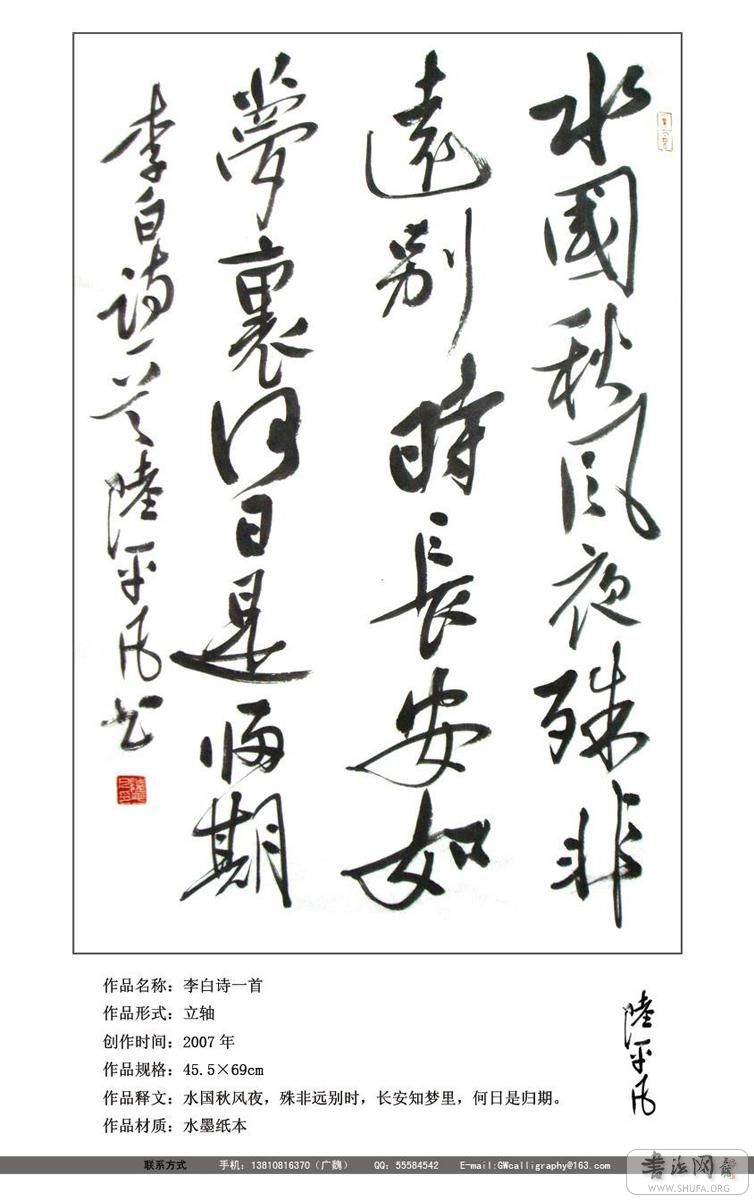 水國秋风夜殊非
遠别時長安如
夢裏何日是归期
李白诗一首陸平风书
作品名称：李白诗一首
作品形式：立轴
创作时间：2007 年
作品规格：45.5×69cm
作品释文：水国秋风夜，殊非远别时，长安知梦里，何日是归期。
作品材质：水墨纸本
陸平风
联系方式 手机：13810816370（广魏） QQ：55584542 E-mail:GWcalligraphy@163.com
书法网
WWW.SHUFA.ORG